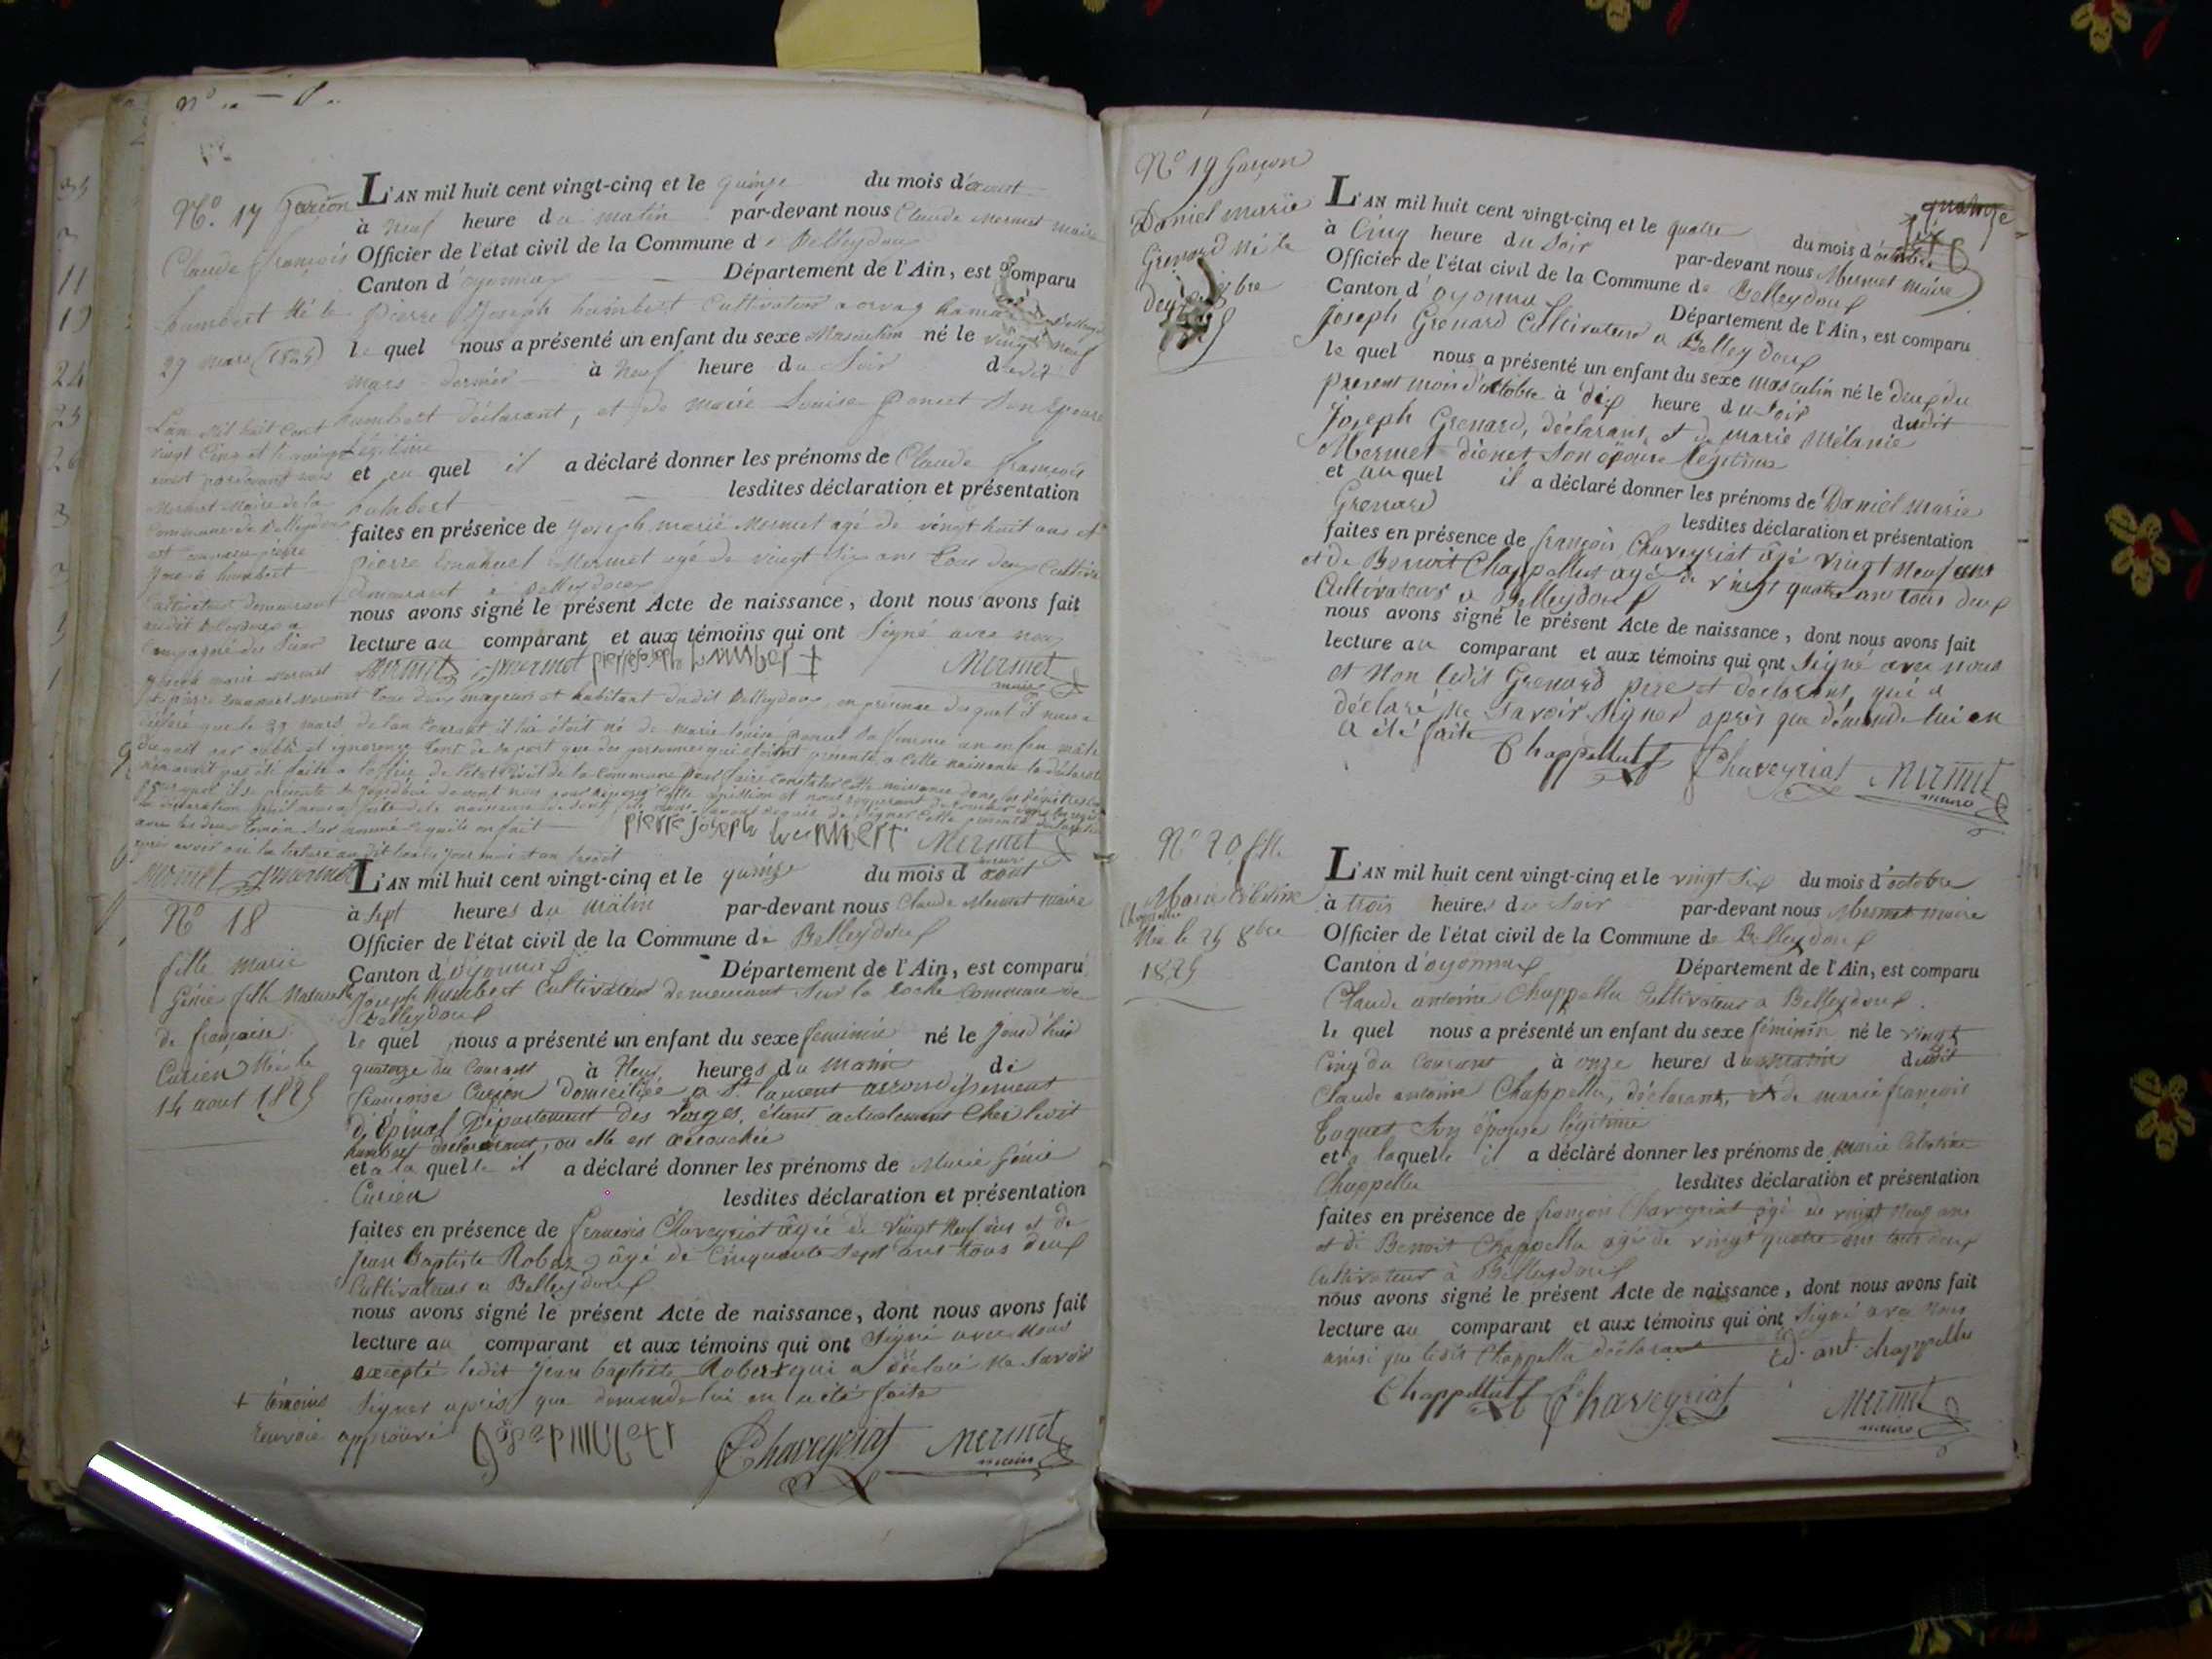 N° 17 Garçon
Claude françois
humbert Né le
29 mars (1825)
L'AN mil huit cent vingt-cinq et le quinze du mois d'aout
à neuf heure du matin par-devant nous Claude Mermet maire
Officier de l'état civil de la Commune de Belleydoux
Canton d'oyonnax Département de l'Ain, est Comparu
Pierre Joseph humbert Cultivateur a orvaz
le quel nous a présenté un enfant du sexe Masculin né le vingt neuf
mars dernier à Neuf heure du Soir dudit
humbert déclarant, et de marie Louise Poncet Son Epouse
Légitime
et au quel il a déclaré donner les prénoms de Claude françois
humbert lesdites déclaration et présentation
faites en présence de Joseph marie Mermet agé de vingt huit ans et
pierre Emanuel Mermet agé de vingt six ans tous deux Cultiv
demeurant à Belleydoux
nous avons signé le présent Acte de naissance, dont nous avons fait
lecture au comparant et aux témoins qui ont Signé avec nous
Mermet Jmermet pierre joseph humbert Mermet
maire
L'an Mil huit Cent
vingt Cinq et le vingt
aout pardevant nous
Mermet Maire de la
Commune de Belleydoux
est comparu pierre
Joseph humbert
Cultivateur demeurant
audit Belleydoux a
Compagné des Sieur
Joseph marie Mermet
et pierre Emanuel Mermet tous deux majeurs et habitant dudit Belleydoux, en présence desquel il nous a
déclaré que le 29 mars de l'an Courant il lui était né de marie louise poncet Sa femme un enfan mâle
que par oubli et ignorance tant de Sa part que des personnes qui étoient présente a Cette naissance la déclarat
n'en avait pas été faite a l'office de l'état Civil de la Commune pour faire Constater Cette naissance dans les Régistres
avec les deux temoin
après avoir oui la lecture
pierre joseph humbert Mermet
maire
mermet Jmermet
N° 18
fille marie
Génie fille Naturelle
de françoise
Curien Née le
14 aout 1825
L'AN mil huit cent vingt-cinq et le quinze du mois d'aout
à sept heures du matin par-devant nous Claude Mermet maire
Officier de l'état civil de la Commune de Belleydoux
Canton d'oyonnax Département de l'Ain, est comparu
Joseph humbert Cultivateur demeurant Sur la Roche Comune de
Belleydoux
le quel nous a présenté un enfant du sexe feminin né le jourd'hier
quatorze du Courant à Neuf heures du matin de
françoise Curien domiciliée a St laurent arrondissement
d'épinal Département des Vosges, étant actuelement Cher ledit
humbert declarant, ou elle est accouchée
et a la quelle il a déclaré donner les prénoms de Marie Génie
Curien lesdites déclaration et présentation
faites en présence de françois Chaveyriat âgé de vingt Neuf ans et de
Jean Baptiste Robez âgé de Cinquante Sept ans tous deux
Cultivateurs a Belleydoux
nous avons signé le présent Acte de naissance, dont nous avons fait
lecture au comparant et aux témoins qui ont Signé avec nous
excepté ledit Jean baptiste Robez + qui a déclaré ne Savoir
+ témoins Signer après que demande lui en a été faite
Renvoie approuvé
Chaveyriat Mermet
maire
quatorze
N° 19 Garçon
Daniel marie
Grenard Né le
deux
L'AN mil huit cent vingt-cinq et le quatre du mois d'octobre
à Cinq heure du Soir par-devant nous Mermet maire
Officier de l'état civil de la Commune de Belleydoux
Canton d'oyonnax Département de l'Ain, est comparu
Joseph Grenard Cultivateur a Belleydoux
le quel nous a présenté un enfant du sexe masculin né le deux du
present mois d'octobre à dix heure du Soir dudit
Joseph Grenard, déclarant, et de marie Mélanie
Mermet dienet Son épouse légitime
et au quel il a déclaré donner les prénoms de Daniel marie
Grenard lesdites déclaration et présentation
faites en présence de françois Chaveyriat âgé vingt Neuf ans
et de Benoit Chappellu agé de vingt quatre ans tous deux
Cultivateurs a Belleydoux
nous avons signé le présent Acte de naissance, dont nous avons fait
lecture au comparant et aux témoins qui ont Signé avec nous
et Non ledit Grenard pere et déclarant, qui a
déclaré ne Savoir Signer après que demande lui en
a été faite
Chappellu Chaveyriat Mermet
maire
N° 20 fille
Marie Célestine
Chappellu
Née le 25 8bre
1825
L'AN mil huit cent vingt-cinq et le vingt Six du mois d'octobre
à trois heures du Soir par-devant nous Mermet maire
Officier de l'état civil de la Commune de Belleydoux
Canton d'oyonnax Département de l'Ain, est comparu
Claude antoine Chappellu Cultivateur a Belleydoux
le quel nous a présenté un enfant du sexe féminin né le vingt
Cinq du Courant à onze heures du matin dudit
Claude antoine Chappellu, déclarant, et de marie françoise
Toquet Son épouse légitime
et a laquelle il a déclaré donner les prénoms de marie Célestine
Chappellu lesdites déclaration et présentation
faites en présence de françois Chaveyriat âgé de vingt Neuf ans
et de Benoit Chappellu agé de vingt quatre ans tous deux
Cultivateur à Belleydoux
nous avons signé le présent Acte de naissance, dont nous avons fait
lecture au comparant et aux témoins qui ont Signé avec nous
ainsi que ledit Chappellu déclarant Cd. ant. chappellu
Chappellu Chaveyriat Mermet
maire